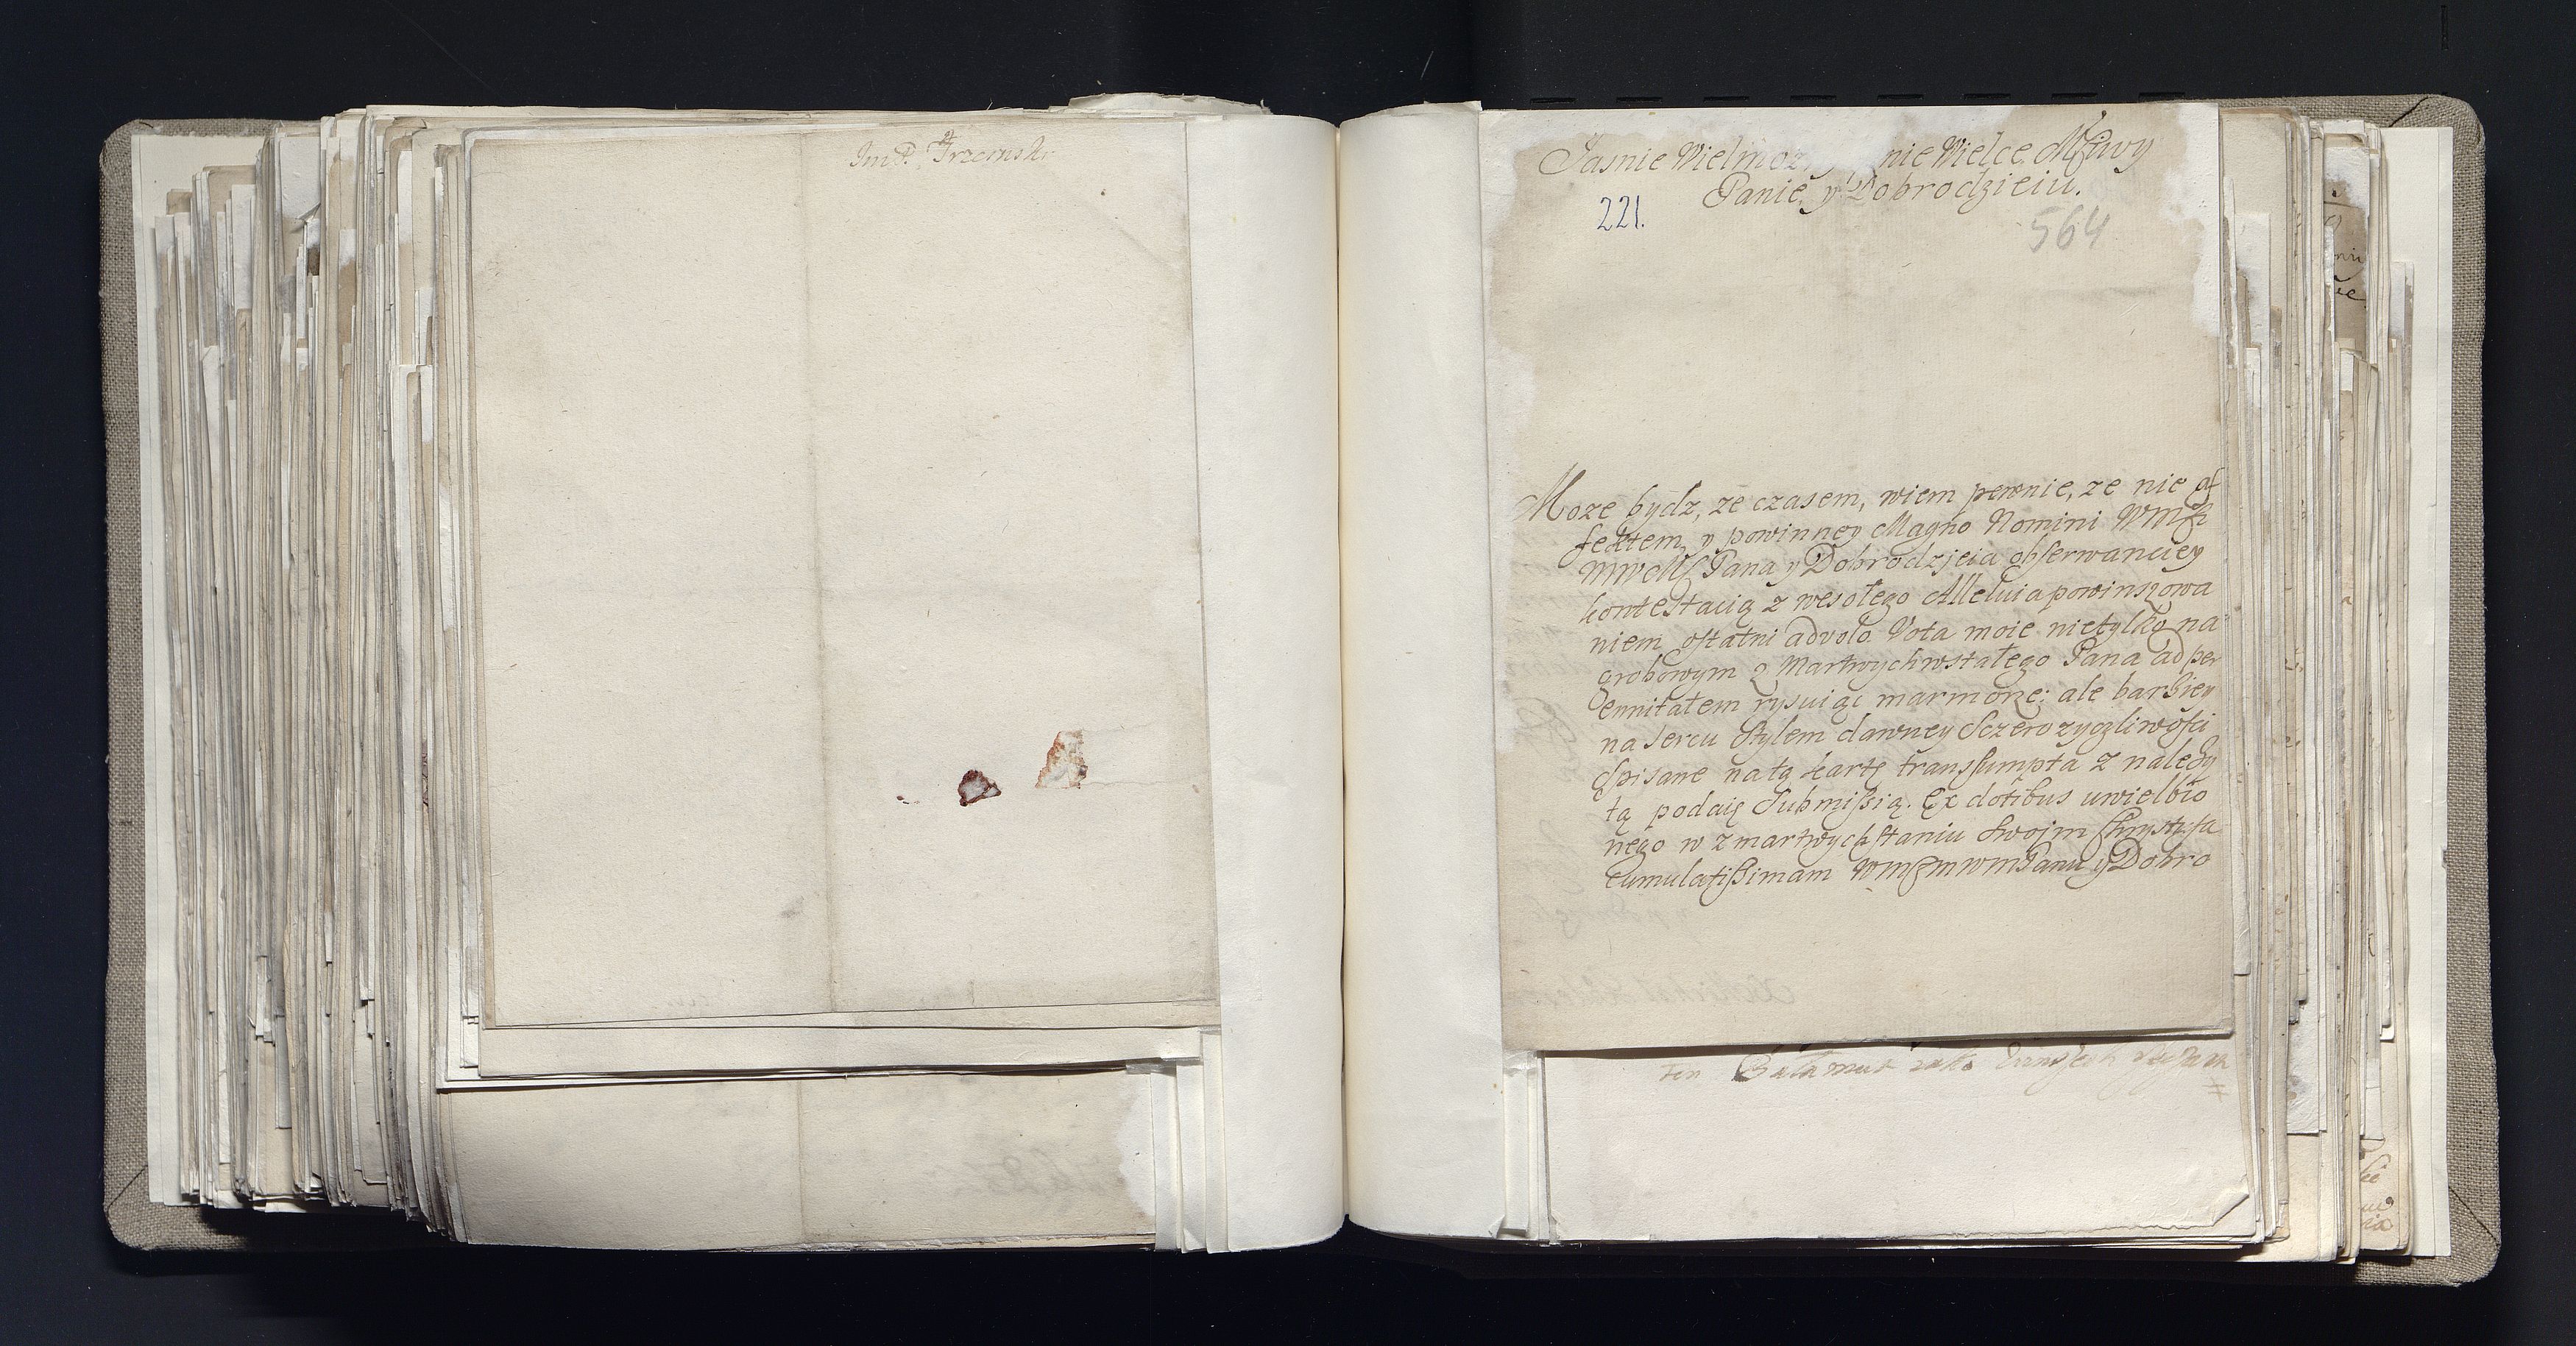 ImP. Trzcinski
Jasnie Wielmoz nie Wielce Mściwy
Panie y Dobrodzieiu.
221.
564
Moze bydz, ze czasem, wiem pewnie, ze nie af
fektem, y powinney Magno Nomini WMſci
MWMſ Pana y Dobrodzieia obſerwanciey
kontestacią z wesołego Alleluia powinszowa
niem oſtatni advolo. Vota moie nietylko na
grobowym zmartwychwstałego Pana ad per
ennitatem rysuiąc marmorze: ale barziey
na sercu Stylem dawney Sczerozyczliwoſci
Spisane na tą kartę transſumpta z nalezy
tą podaię Submiſsią. Ex dotibus uwielbio
nego w zmartwychſtaniu Swoim Chrystuſa
cumulatiſsimam WMſMWMPanu y Dobro
ten Bałamut